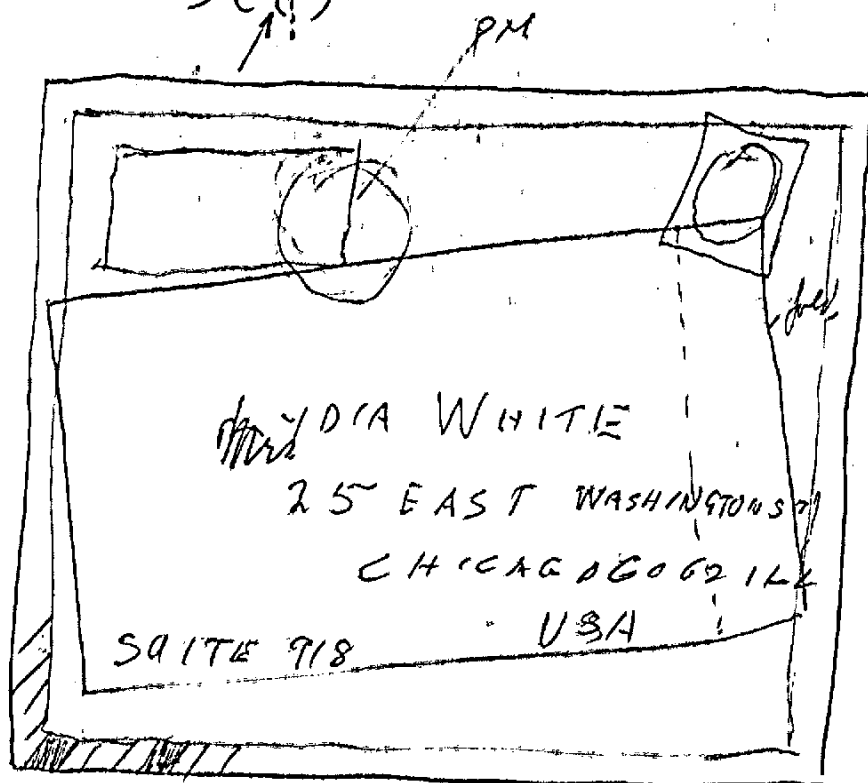 PM
fold
Mrs DIA WHITE
25 EAST WASHINGTON ST
CHICAGO GO 62 ILL
USA
SQITE 918